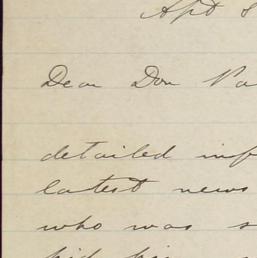 Apt 8
Dear Don Pa
detailed inf
latest news
who was s